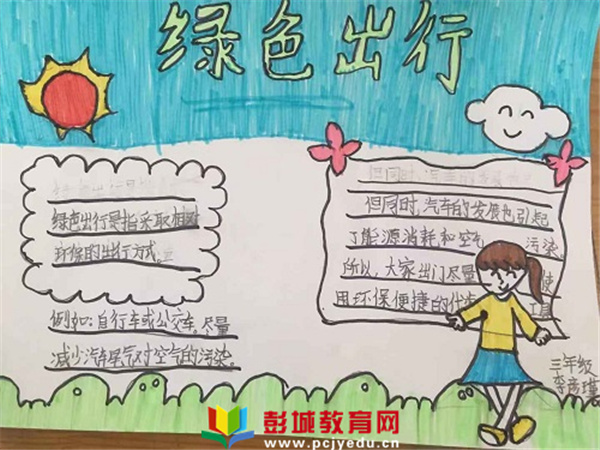 绿色出行
绿色出行是指采取相对
环保的出行方式。
例如:自行车或公交车。尽量
减少汽车尾气对空气的污染。
但同时,汽车的发展
但同时,汽车的发展也引起
了能源消耗和空气 污染。
所以,大家出门尽量 使
用环保便捷的代步 工具
三年级
李彦瑾
彭城教育网
www.pcjyedu.cn